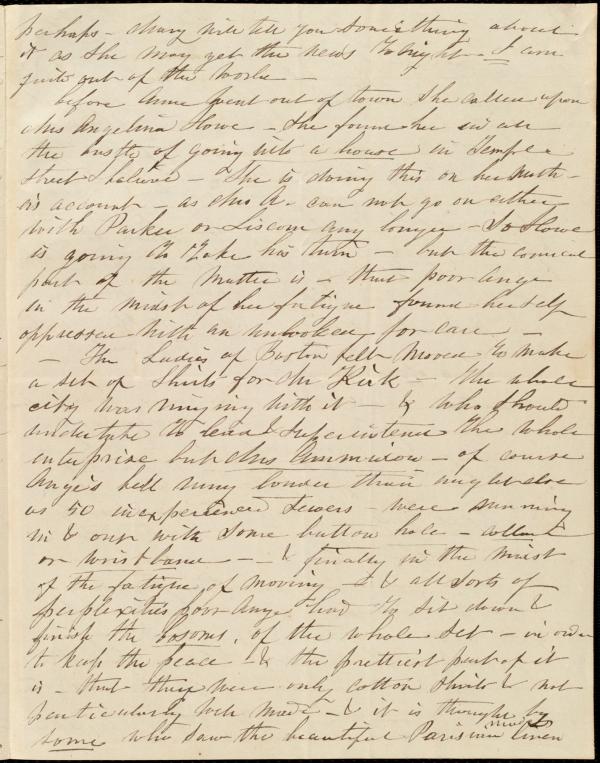 perhaps - Mary will tell you something about
it as she may get the news tonight - I am
quite out of the world -
before Anne went out of town she called upon
Mrs Angelina Howe - She found her in all
the bustle of going into a house in Temple
Street I believe - She is doing this on her
account - as Mrs A. can not go on either
with Parker or Liscom any longer - So Howe
is going to take his turn - but the comical
part of the matter is - that poor Ange
in the midst of her fatigue found herself
oppressed with an unlooked for care -
- The Ladies of Boston felt moved to make
a set of Shirts for Mr Kirk - the whole
city was ringing with it - & who should
undertake to lead & superintend the whole
enterprise but Mrs - of course
Ange's bell rung louder than any else
as 50 inexperienced Sewers - were running
in & out with some button hole - collar
or wristband - & finally in the midst
of the fatigue of moving - & all sorts of
perplexities poor Ange had to sit down &
finish the bosoms, of the whole set - in order
to keep the peace - & the prettiest part of it
is - that they were only cotton shirts & not
particularly well made - & it is thought by
some who saw the beautiful Parisian linen